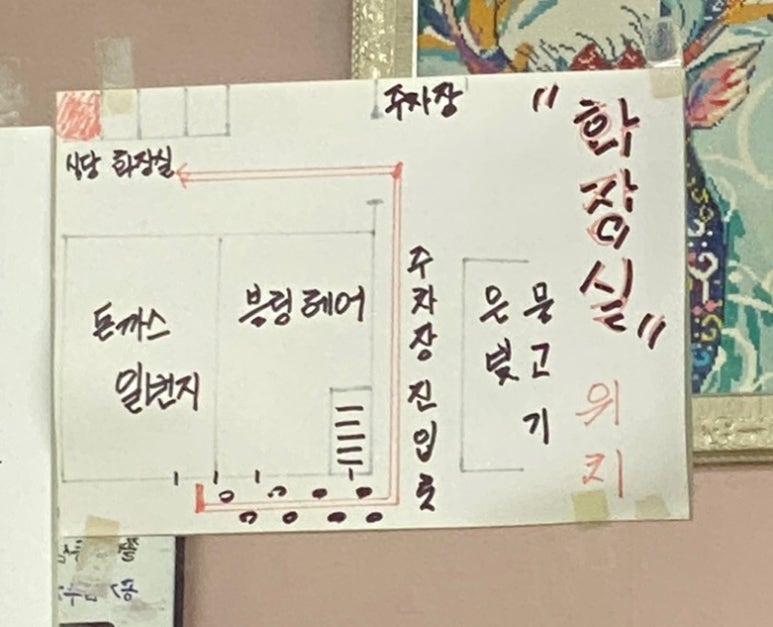 "화장실"
위치
주차장
식당 화장실
돈까스
일번지
블링헤어
주차장 진입로
은빛
물고기